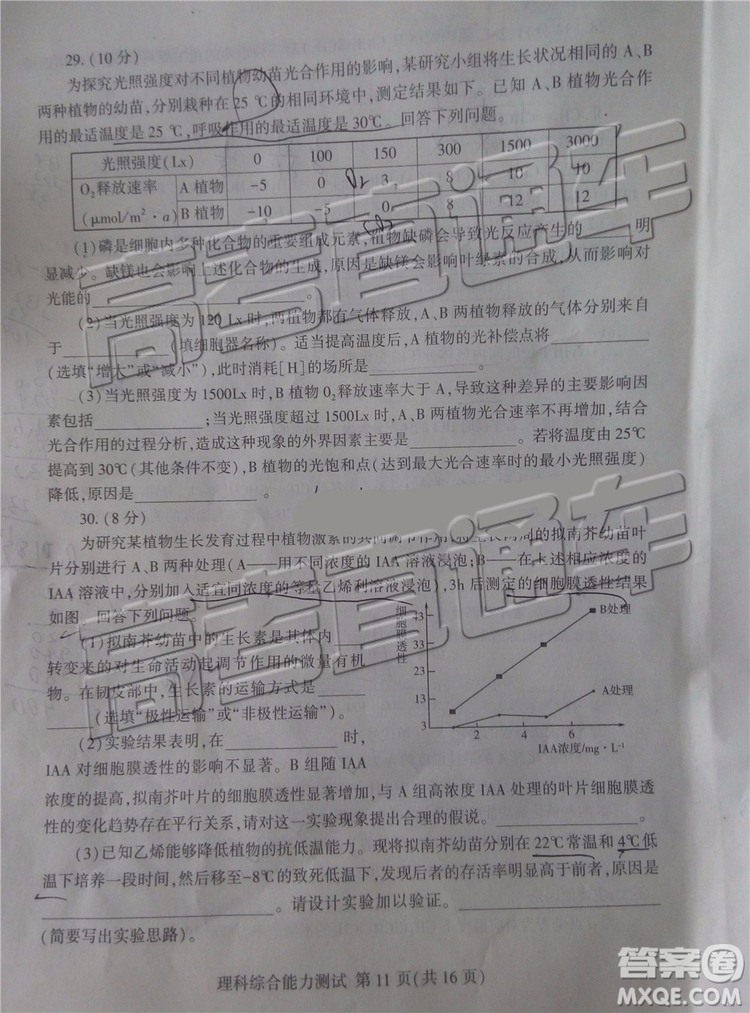 29.(10分)
为探究光照强度对不同植物幼苗光合作用的影响,某研究小组将生长状况相同的A、B
两种植物的幼苗,分别栽种在25℃的相同环境中,测定结果如下。已知A、B植物光合作
用的最适温度是25℃,呼吸作用的最适温度是30℃。回答下列问题。
光照强度(Lx) 0 100 150 300 1500 3000
O₂释放速率 A植物 -5 0 3 8 10 10
(μmol/m²·a) B植物 -10 -5 0 8 12 12
(1)磷是细胞内多种化合物的重要组成元素,植物缺磷会导致光反应产生的______明
显减少。缺镁也会影响上述化合物的生成,原因是缺镁会影响叶绿素的合成,从而影响对
光能的______。
(2)当光照强度为120Lx时,两植物都有气体释放,A、B两植物释放的气体分别来自
于______(填细胞器名称)。适当提高温度后,A植物的光补偿点将______
(选填“增大”或“减小”),此时消耗[H]的场所是______。
(3)当光照强度为1500Lx时,B植物O₂释放速率大于A,导致这种差异的主要影响因
素包括______;当光照强度超过1500Lx时,A、B两植物光合速率不再增加,结合
光合作用的过程分析,造成这种现象的外界因素主要是______。若将温度由25℃
提高到30℃(其他条件不变),B植物的光饱和点(达到最大光合速率时的最小光照强度)
降低,原因是______。
30.(8分)
为研究某植物生长发育过程中植物激素的共同调节作用,将生长两周的拟南芥幼苗叶
片分别进行A、B两种处理(A——用不同浓度的IAA溶液浸泡;B——在上述相应浓度的
IAA溶液中,分别加入适宜同浓度的等量乙烯利溶液浸泡),3h后测定的细胞膜透性结果
如图。回答下列问题。
(1)拟南芥幼苗中的生长素是其体内
转变来的对生命活动起调节作用的微量有机
物。在韧皮部中,生长素的运输方式是____
____(选填“极性运输”或“非极性运输”)。
(2)实验结果表明,在______时,
IAA对细胞膜透性的影响不显著。B组随IAA
细胞膜透性
43
33
23
13
3
2 4 6
B处理
A处理
IAA浓度/mg·L⁻¹
浓度的提高,拟南芥叶片的细胞膜透性显著增加,与A组高浓度IAA处理的叶片细胞膜透
性的变化趋势存在平行关系,请对这一实验现象提出合理的假说。______
(3)已知乙烯能够降低植物的抗低温能力。现将拟南芥幼苗分别在22℃常温和4℃低
温下培养一段时间,然后移至-8℃的致死低温下,发现后者的存活率明显高于前者,原因是
______。请设计实验加以验证。
(简要写出实验思路)。
理科综合能力测试 第11页(共16页)
高考直通车
高考直通车
答案圈
MXQE.COM